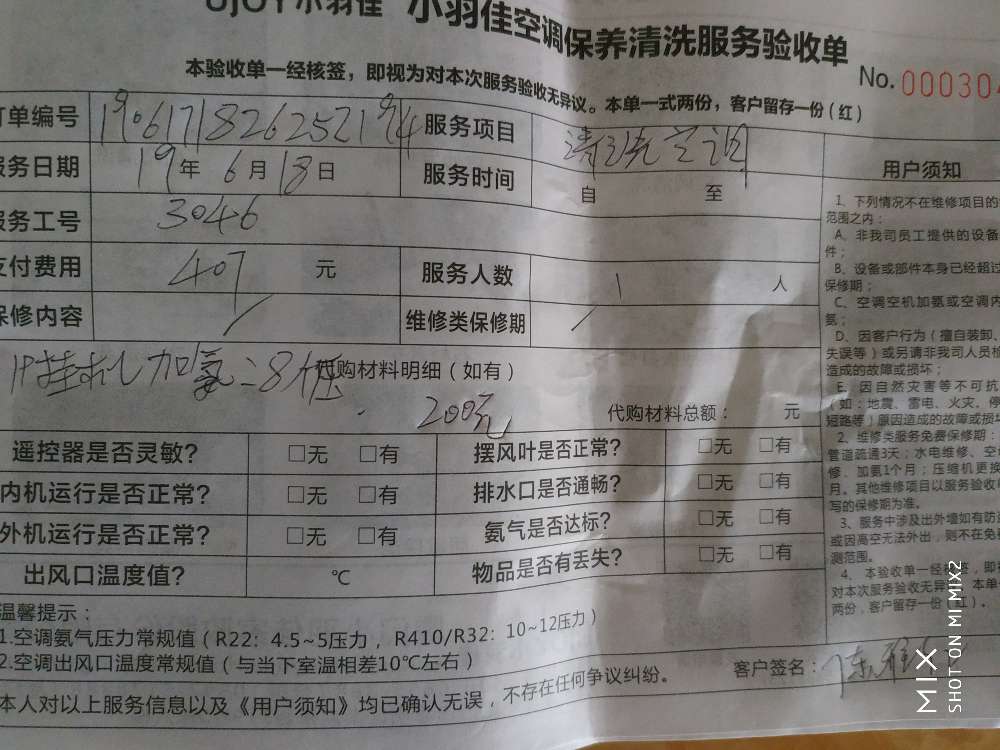 UJOY小羽佳 小羽佳空调保养清洗服务验收单
本验收单一经核签，即视为对本次服务验收无异议。本单一式两份，客户留存一份（红）
No. 000304
订单编号 1906171826252194 服务项目 清洗空调
服务日期 19年 6月 18日 服务时间 自 至
服务工号 3046
支付费用 407 元 服务人数 1 人
保修内容 / 维修类保修期 /
1P挂机加氨=8个压 代购材料明细（如有）
200元 代购材料总额： 元
遥控器是否灵敏？ □无 □有 摆风叶是否正常？ □无 □有
内机运行是否正常？ □无 □有 排水口是否通畅？ □无 □有
外机运行是否正常？ □无 □有 氨气是否达标？ □无 □有
出风口温度值？ ℃ 物品是否有丢失？ □无 □有
温馨提示：
1.空调氨气压力常规值（R22：4.5~5压力，R410/R32：10~12压力）
2.空调出风口温度常规值（与当下室温相差10℃左右）
客户签名：陈
本人对以上服务信息以及《用户须知》均已确认无误，不存在任何争议纠纷。
用户须知
1、下列情况不在维修项目的
范围之内：
A、非我司员工提供的设备
件；
B、设备或部件本身已经超过
保修期；
C、空调空机加氨或空调内
氨；
D、因客户行为（擅自装卸、
失误等）或另请非我司人员检
造成的故障或损坏；
E、因自然灾害等不可抗
（如：地震、雷电、火灾、停
短路等）原因造成的故障或损坏
2、维修类服务免费保修期：
管道疏通3天；水电维修、空
修、加氨1个月；压缩机更换
月。其他维修项目以服务验收
写的保修期为准。
3、服务中涉及出外墙如有防
或因高空无法外出，则不在免
测范围。
4、本验收单一经核签，即视
对本次服务验收无异议。本单一
两份，客户留存一份（红）。
MIX
SHOT ON MI MIX2